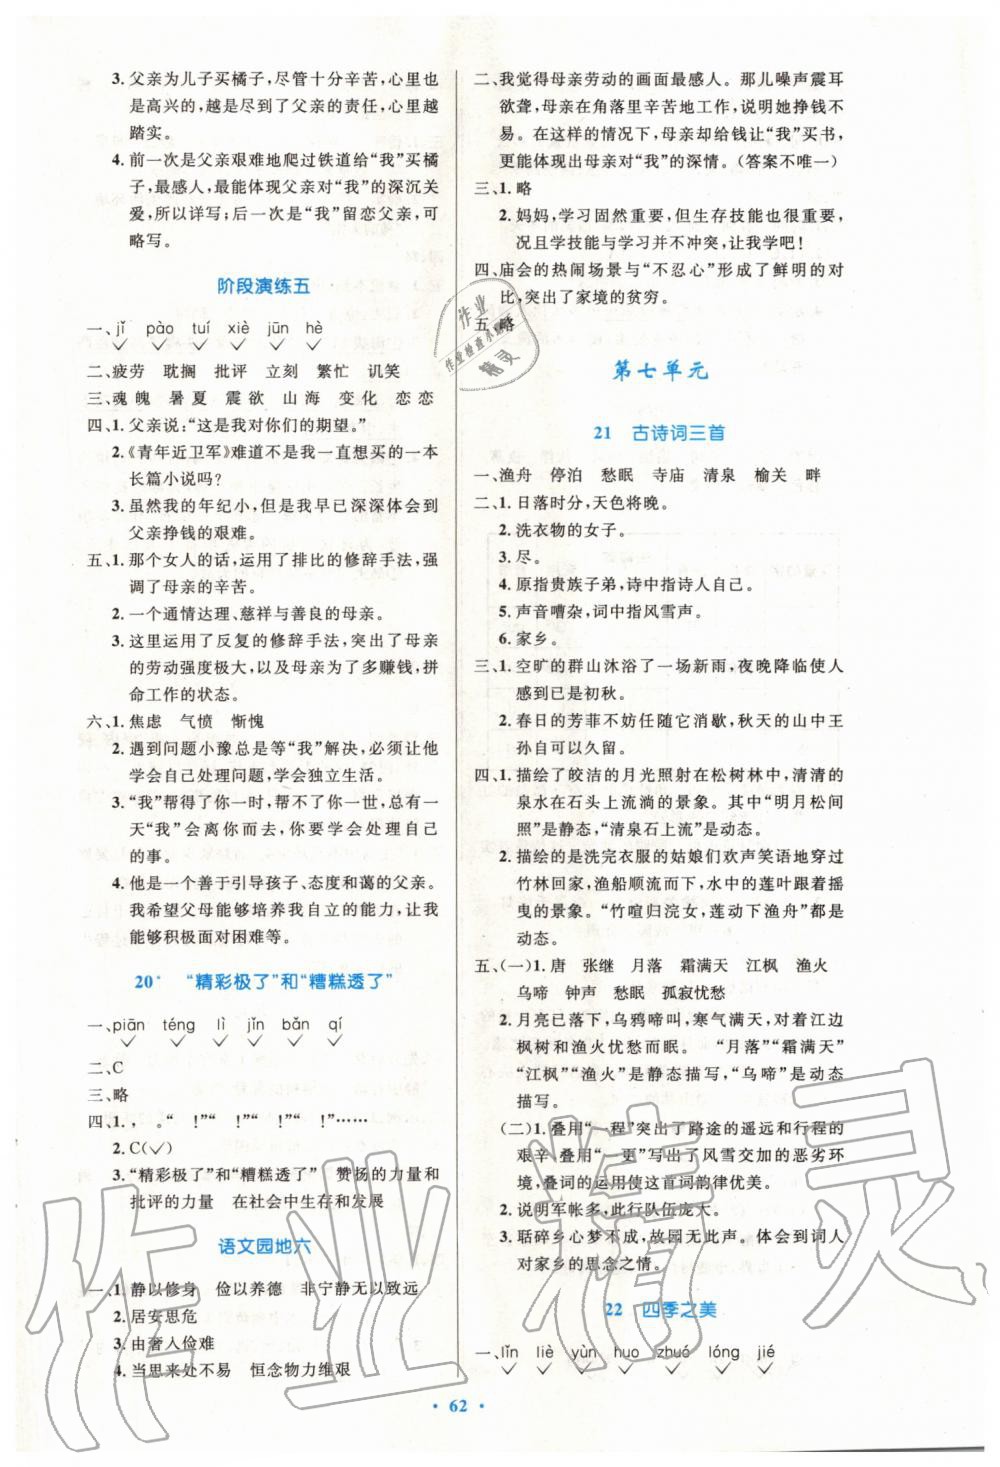 3. 父亲为儿子买橘子,尽管十分辛苦,心里也
是高兴的,越是尽到了父亲的责任,心里越
踏实。
4. 前一次是父亲艰难地爬过铁道给“我”买橘
子,最感人,最能体现父亲对“我”的深沉关
爱,所以详写;后一次是“我”留恋父亲,可
略写。
阶段演练五
一、jǐ pào tuí xiè jūn hè
二、疲劳 耽搁 批评 立刻 繁忙 讥笑
三、魂魄 暑夏 震欲 山海 变化 恋恋
四、1. 父亲说:“这是我对你们的期望。”
2.《青年近卫军》难道不是我一直想买的一本
长篇小说吗?
3. 虽然我的年纪小,但是我早已深深体会到
父亲挣钱的艰难。
五、1. 那个女人的话,运用了排比的修辞手法,强
调了母亲的辛苦。
2. 一个通情达理、慈祥与善良的母亲。
3. 这里运用了反复的修辞手法,突出了母亲
的劳动强度极大,以及母亲为了多赚钱,拼
命工作的状态。
六、1. 焦虑 气愤 惭愧
2. 遇到问题小豫总是等“我”解决,必须让他
学会自己处理问题,学会独立生活。
3. “我”帮得了你一时,帮不了你一世,总有一
天“我”会离你而去,你要学会处理自己
的事。
4. 他是一个善于引导孩子、态度和蔼的父亲。
我希望父母能够培养我自立的能力,让我
能够积极面对困难等。
20* “精彩极了”和“糟糕透了”
一、piān téng lì jǐn bǎn qí
二、C
三、略
四、1. , 。“ !”“ !”“ !”……
2. C(✓)
3. “精彩极了”和“糟糕透了” 赞扬的力量和
批评的力量 在社会中生存和发展
语文园地六
一、1. 静以修身 俭以养德 非宁静无以致远
2. 居安思危
3. 由奢入俭难
4. 当思来处不易 恒念物力维艰
二、我觉得母亲劳动的画面最感人。那儿噪声震耳
欲聋,母亲在角落里辛苦地工作,说明她挣钱不
易。在这样的情况下,母亲却给钱让“我”买书,
更能体现出母亲对“我”的深情。(答案不唯一)
三、1. 略
2. 妈妈,学习固然重要,但生存技能也很重要,
况且学技能与学习并不冲突,让我学吧!
四、庙会的热闹场景与“不忍心”形成了鲜明的对
比,突出了家境的贫穷。
五、略
作业
作业检查小助手
精灵
第七单元
21 古诗词三首
一、渔舟 停泊 愁眠 寺庙 清泉 榆关 畔
二、1. 日落时分,天色将晚。
2. 洗衣物的女子。
3. 尽。
4. 原指贵族子弟,诗中指诗人自己。
5. 声音嘈杂,词中指风雪声。
6. 家乡。
三、1. 空旷的群山沐浴了一场新雨,夜晚降临使人
感到已是初秋。
2. 春日的芳菲不妨任随它消歇,秋天的山中王
孙自可以久留。
四、1. 描绘了皎洁的月光照射在松树林中,清清的
泉水在石头上流淌的景象。其中“明月松间
照”是静态,“清泉石上流”是动态。
2. 描绘的是洗完衣服的姑娘们欢声笑语地穿过
竹林回家,渔船顺流而下,水中的莲叶跟着摇
曳的景象。“竹喧归浣女,莲动下渔舟”都是
动态。
五、(一)1. 唐 张继 月落 霜满天 江枫 渔火
乌啼 钟声 愁眠 孤寂忧愁
2. 月亮已落下,乌鸦啼叫,寒气满天,对着江边
枫树和渔火忧愁而眠。 “月落”“霜满天”
“江枫”“渔火”是静态描写,“乌啼”是动态
描写。
(二)1. 叠用“一程”突出了路途的遥远和行程的
艰辛 叠用“一更”写出了风雪交加的恶劣环
境,叠词的运用使这首词韵律优美。
2. 说明军帐多,此行队伍庞大。
3. 聒碎乡心梦不成,故园无此声。体会到词人
对家乡的思念之情。
22 四季之美
一、lǐn liè yùn huo zhuó lóng jié
· 62 ·
作业精灵